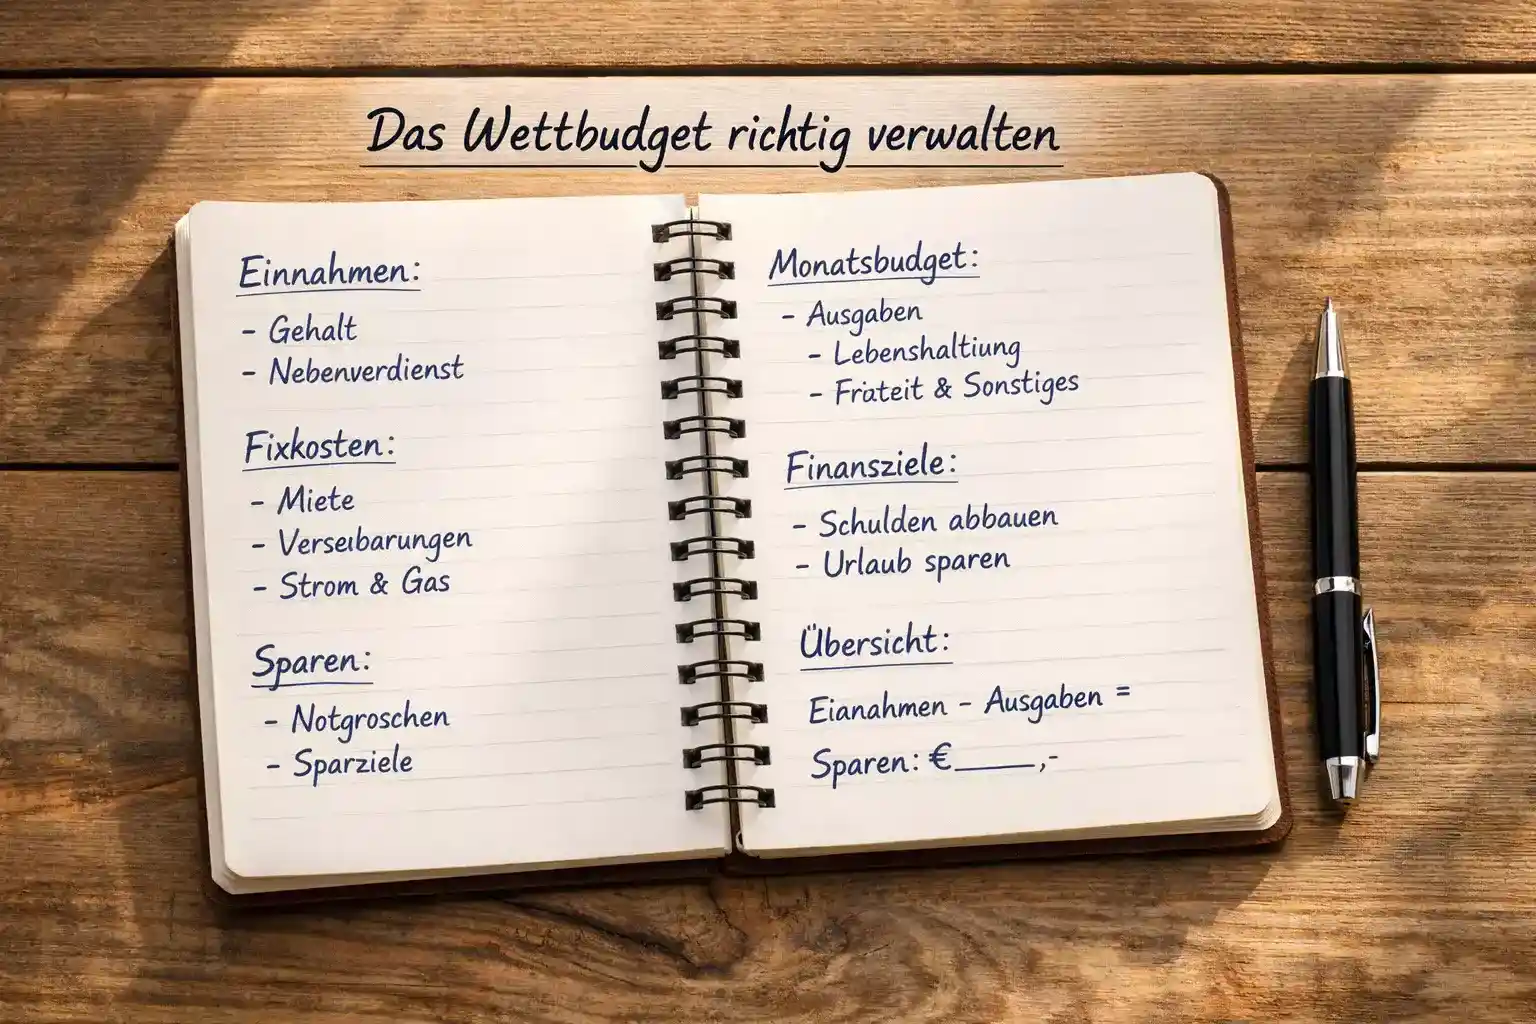 Das Wettbudget richtig verwalten
Einnahmen:
- Gehalt
- Nebenverdienst
Fixkosten:
- Miete
- Verseibarungen
- Strom & Gas
Sparen:
- Notgroschen
- Sparziele
Monatsbudget:
- Ausgaben
- Lebenshaltiung
- Frateit & Sonstiges
Finansziele:
- Schulden abbauen
- Urlaub sparen
Übersicht:
Eianahmen - Ausgaben =
Sparen: €_____,-